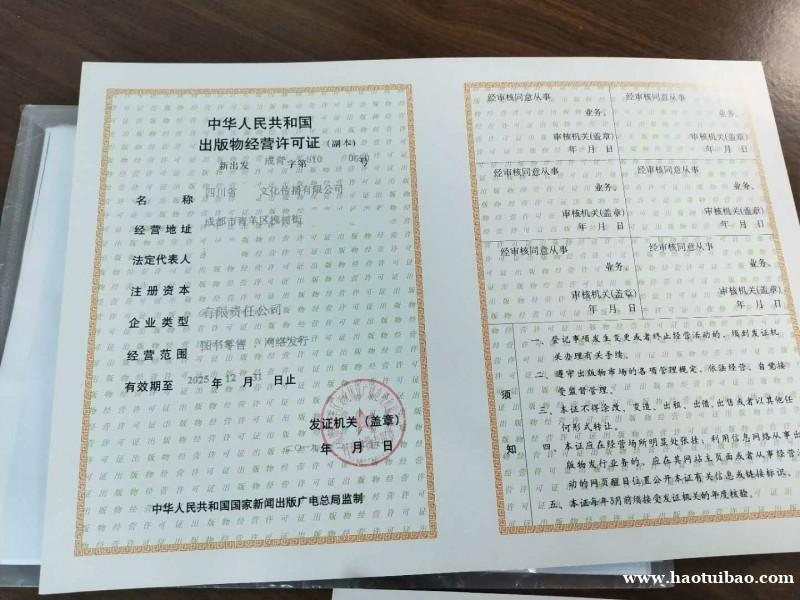 中华人民共和国
出版物经营许可证(副本)
新出发 成青 字第 510 号
名 称 四川省 文化传播有限公司
经营地址 成都市青羊区
法定代表人
注册资本
企业类型 有限责任公司
经营范围 图书零售 网络发行
有效期至 2025年12月31日止
发证机关(盖章)
年 月 日
中华人民共和国国家新闻出版广电总局监制
经审核同意从事
业务。
审核机关(盖章)
年 月 日
经审核同意从事
业务。
审核机关(盖章)
年 月 日
经审核同意从事
业务。
审核机关(盖章)
年 月 日
经审核同意从事
业务。
审核机关(盖章)
年 月 日
经审核同意从事
业务。
审核机关(盖章)
年 月 日
经审核同意从事
业务。
审核机关(盖章)
年 月 日
须知
一、登记事项发生变更或者终止经营活动的,须到发证机
关办理有关手续。
二、遵守出版物市场的各项管理规定,依法经营,自觉接
受监督管理。
三、本证不得涂改、变造、出租、出借、出售或者以其他任
何形式转让。
四、本证应在经营场所明显处张挂,利用信息网络从事出
版物发行业务的,应在其网站主页面或者从事经营活
动的网页醒目位置公开本证有关信息或链接标识。
五、本证每年3月前须接受发证机关的年度核验。
www.haotuibao.com